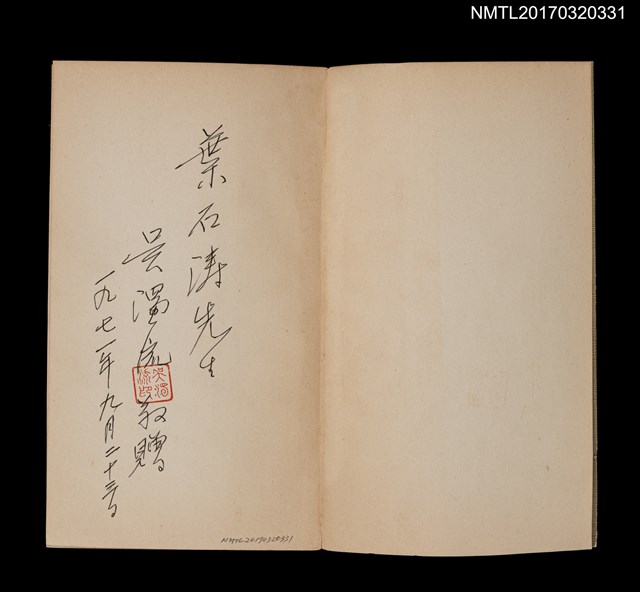 NMTL20170320331
葉石涛先生
吳濁流敬贈
吳濁流印
一九七一年九月二十三日
NMTL20170320331